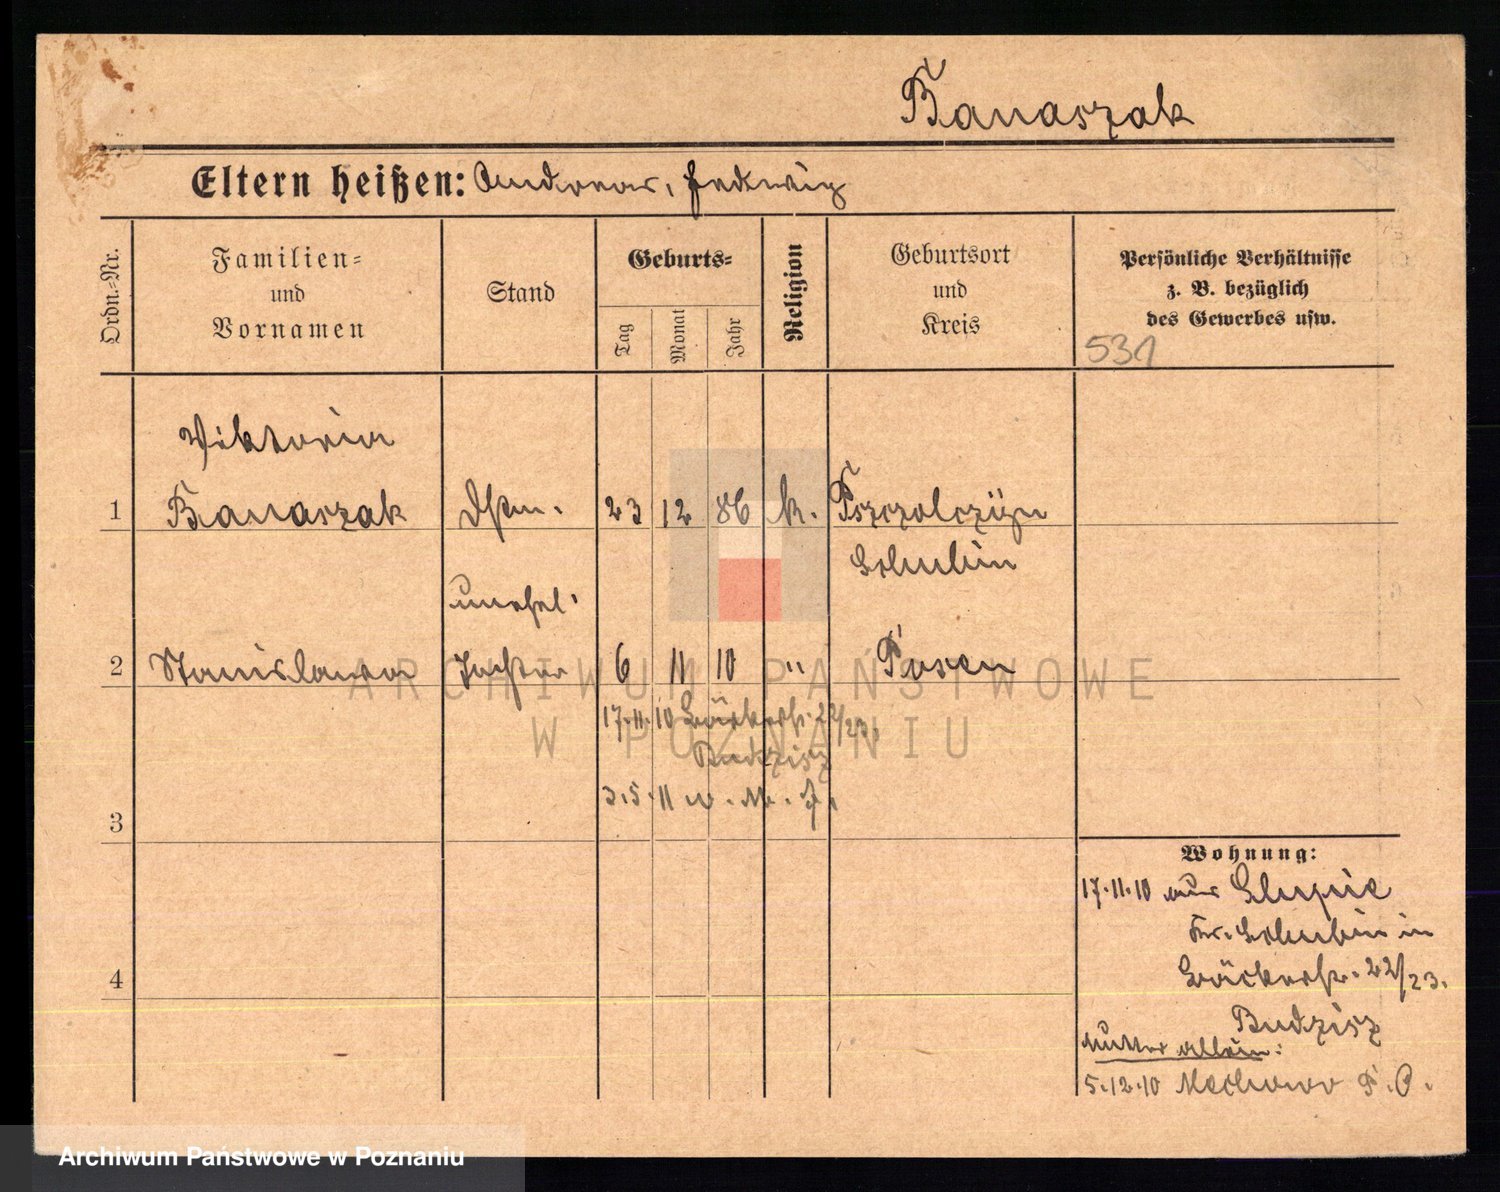 Banaszak
Eltern heißen: Andreas, Hedwig
Ordn.=Nr.
Familien=
und
Vornamen
Stand
Geburts=
Tag
Monat
Jahr
Religion
Geburtsort
und
Kreis
Persönliche Verhältnisse
z. B. bezüglich
des Gewerbes usw.
531
Viktoria
1 Banaszak 23 12 86 k.
Schubin
unehel.
2 Stanislawa Tochter 6 11 10 " Posen
17.11.10 Bäckerstr. 22/23.
Budzisz
3.5.11
3
Wohnung:
17.11.10 aus Slupie
Kr. Schubin in
4 Bäckerstr. 22/23.
Budzisz
Mutter allein:
5.12.10 Mechowo P. O.
ARCHIWUM PAŃSTWOWE
W POZNANIU
Archiwum Państwowe w Poznaniu